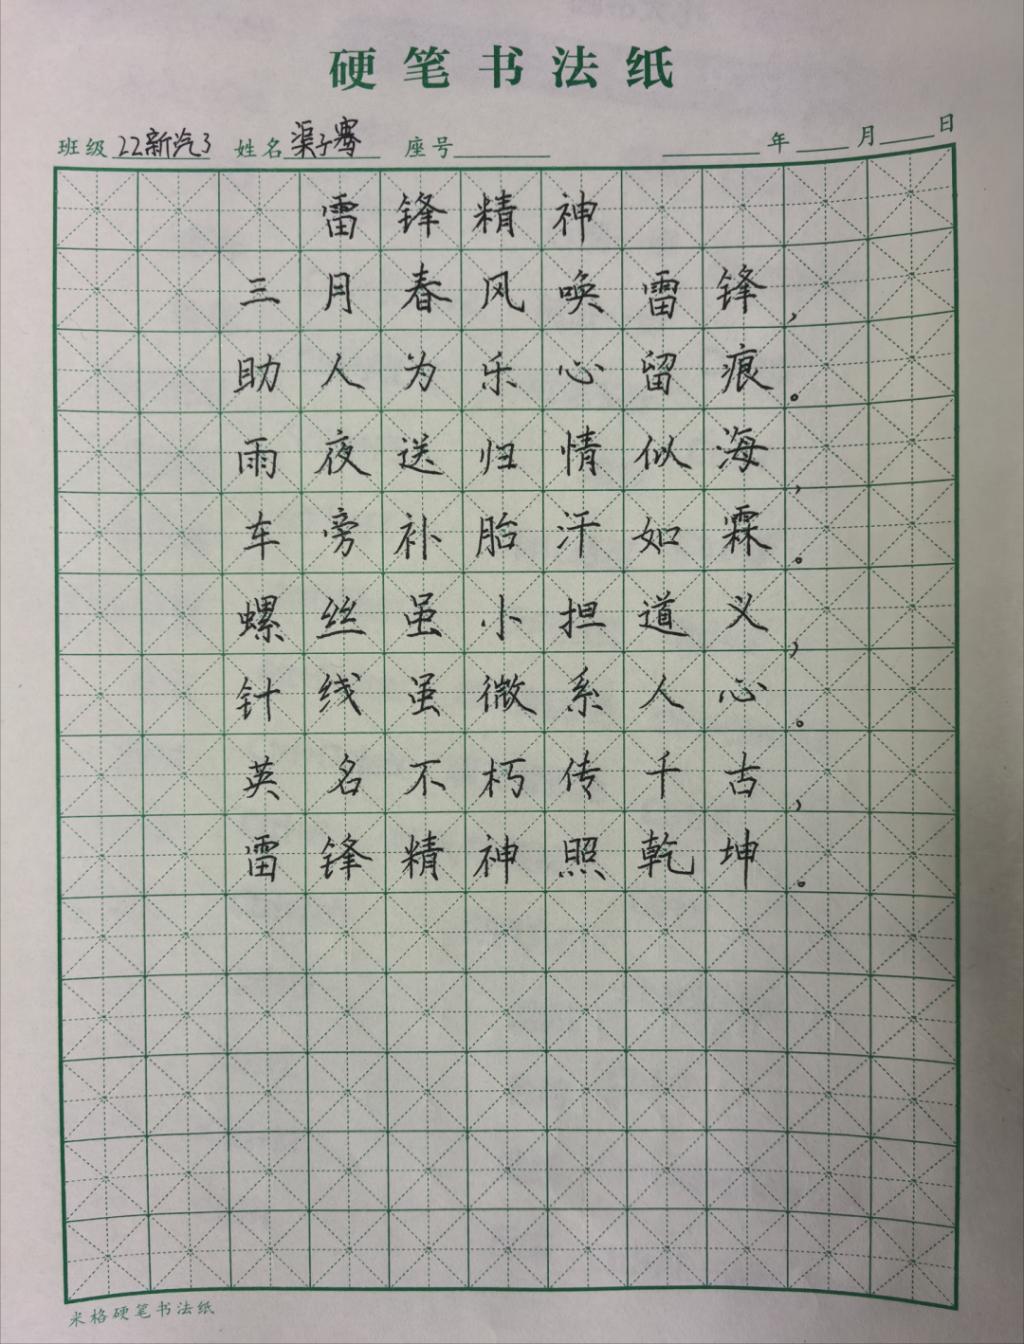 硬笔书法纸
班级 22新汽3 姓名 渠子骞 座号 年 月 日
雷锋精神
三月春风唤雷锋，
助人为乐心留痕。
雨夜送归情似海，
车旁补胎汗如霖。
螺丝虽小担道义，
针线虽微系人心。
英名不朽传千古，
雷锋精神照乾坤。
米格硬笔书法纸